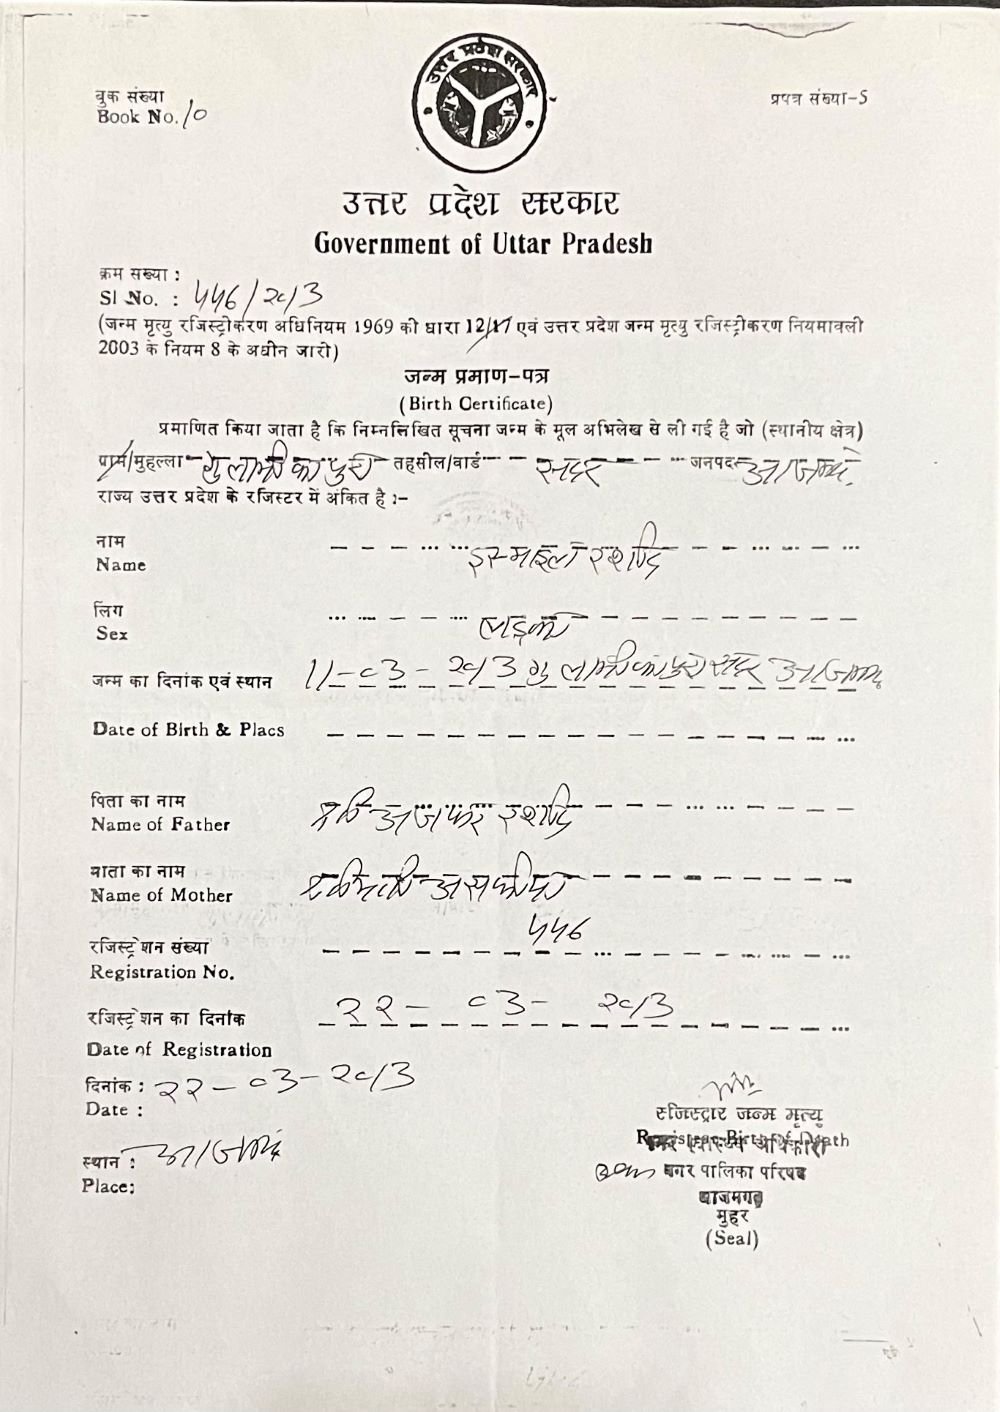 उत्तर प्रदेश सरकार
बुक संख्या
Book No. 10
प्रपत्र संख्या-5
उत्तर प्रदेश सरकार
Government of Uttar Pradesh
क्रम संख्या :
Sl No. : 446/2013
(जन्म मृत्यु रजिस्ट्रीकरण अधिनियम 1969 की धारा 12/17 एवं उत्तर प्रदेश जन्म मृत्यु रजिस्ट्रीकरण नियमावली
2003 के नियम 8 के अधीन जारी)
जन्म प्रमाण-पत्र
(Birth Certificate)
प्रमाणित किया जाता है कि निम्नलिखित सूचना जन्म के मूल अभिलेख से ली गई है जो (स्थानीय क्षेत्र)
ग्राम/मुहल्ला गुलामी का पुरा तहसील/वार्ड सदर जनपद
राज्य उत्तर प्रदेश के रजिस्टर में अंकित है :-
नाम
Name इस्माइल रशीद
लिंग
Sex लड़का
जन्म का दिनांक एवं स्थान 11-03-2013 गुलामी का पुरा सदर
Date of Birth & Placs
पिता का नाम
Name of Father श्री अजफर रशीद
माता का नाम
Name of Mother श्रीमती
रजिस्ट्रेशन संख्या 446
Registration No.
रजिस्ट्रेशन का दिनांक 22-03-2013
Date of Registration
दिनांक : 22-03-2013
Date :
स्थान :
Place:
रजिस्ट्रार जन्म मृत्यु
Registrar Birth Of Death
नगर स्वास्थ्य अधिकारी
नगर पालिका परिषद
आजमगढ़
मुहर
(Seal)